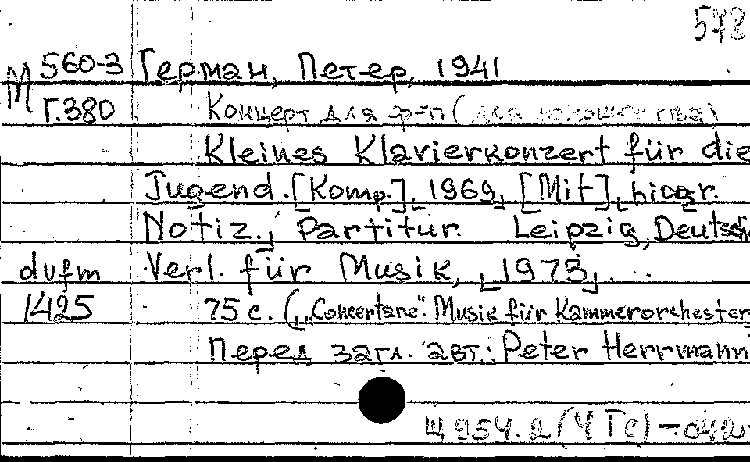 578
М 560-3 Герман, Петер, 1941
Г.380 Концерт для ф-п (для юношества)
Kleines Klavierkonzert für die
Jugend. [Komp.], 1969, [Mit] biogr.
Notiz., Partitur. Leipzig, Deutsch
dvfm Verl. für Musik, [1973].
1425 75 с. ("Concertare". Musik für Kammerorchester
Перед загл. авт.: Peter Herrmann
Щ 954.2 (4 Гс)